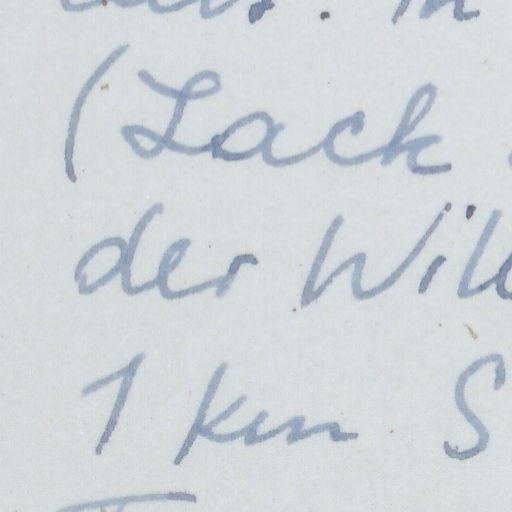 (Lack
der Wil
1 km S